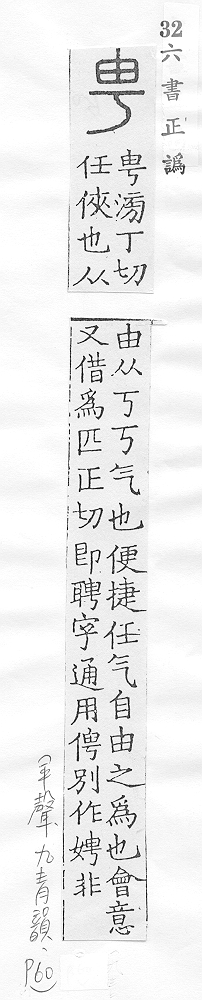 32
六書正譌
甹
甹滂丁切
任俠也从
由从丂丂气也便捷任气自由之為也會意
又借為匹正切卽聘字通用俜別作娉非
平聲九青韻、P60